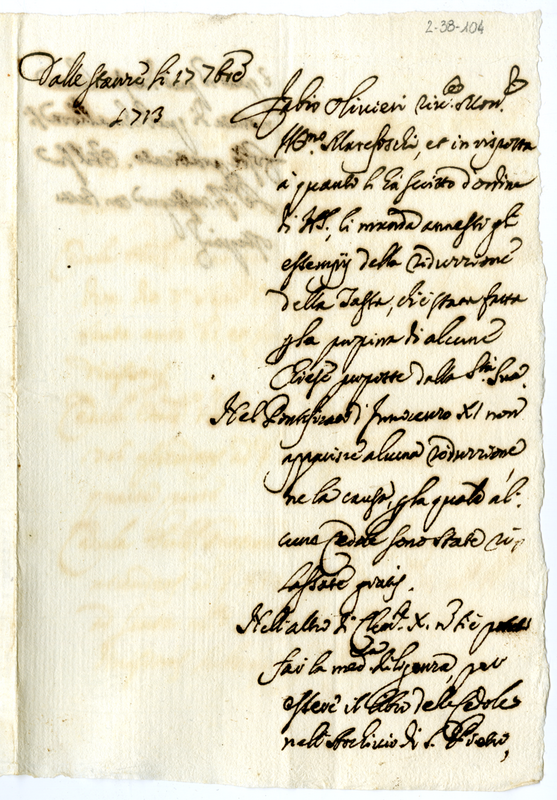 2-38-104
Dalle stanze li 17 7bre
1713
Fabio Olivieri riv. Mons.r
Ill.mo Marefoschi, et in risposta
à quanto li hà scritto d'ordine
di NS., li manda annessi gl'
essempij della riduzzione
della Tassa, ch'è stata fatta
p la propina di alcune
Chiese proposte dalla Stà Sua.
Nel Pontificato d'Innocenzo XI non
apparisce alcuna riduzzione
ne la causa, p la quale al:
cune Cedole sono state ri:
lassate gratis.
Nell'altro di Clem.te X. nō si è
far la med.ma diligenza, per
essere il libro delle Cedole
nell'Archivio di S. Pietro,